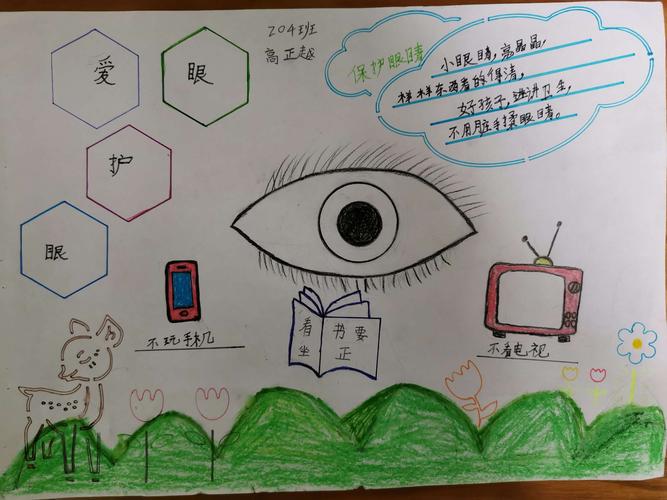 204班
高正越
爱
眼
护
眼
保护眼睛
小眼睛,亮晶晶,
样样东西看的得清,
好孩子,讲卫生,
不用脏手揉眼睛。
不玩手机
看 书 要
坐 正
不看电视